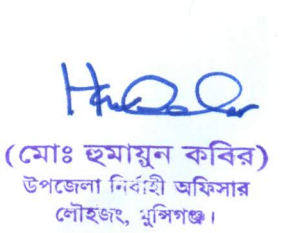 (মোঃ হুমায়ুন কবির)
উপজেলা নির্বাহী অফিসার
লৌহজং, মুন্সিগঞ্জ।